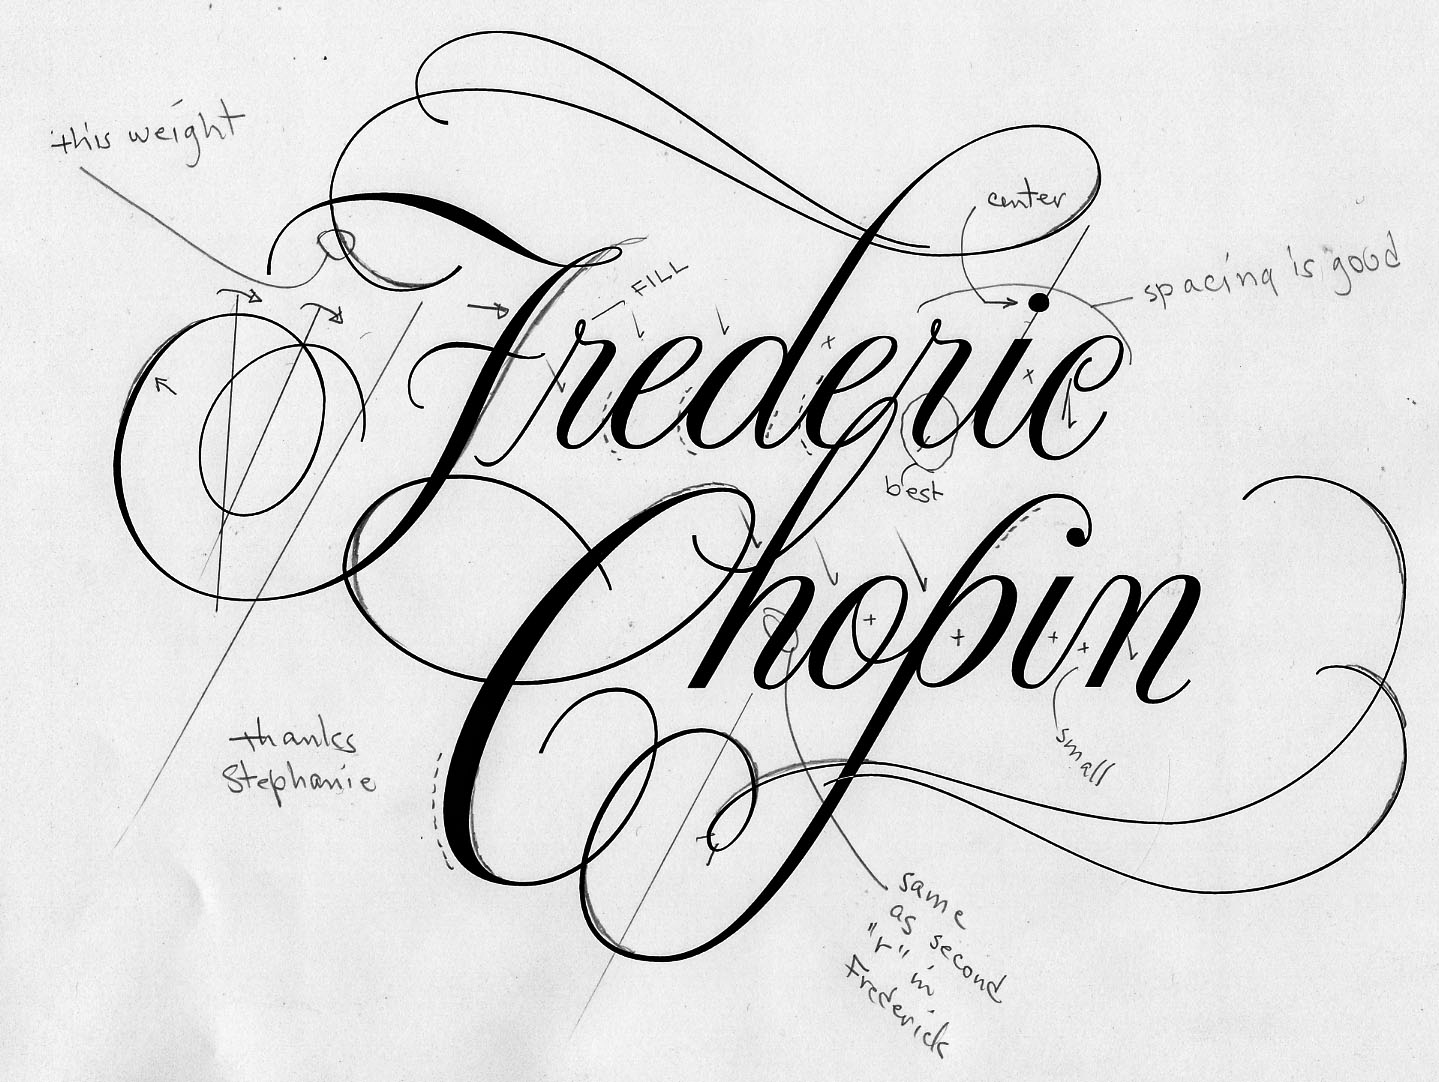 this weight
center
spacing is good
FILL
Frederic
best
Chopin
small
thanks
Stephanie
same
as second
"r" in
Frederick